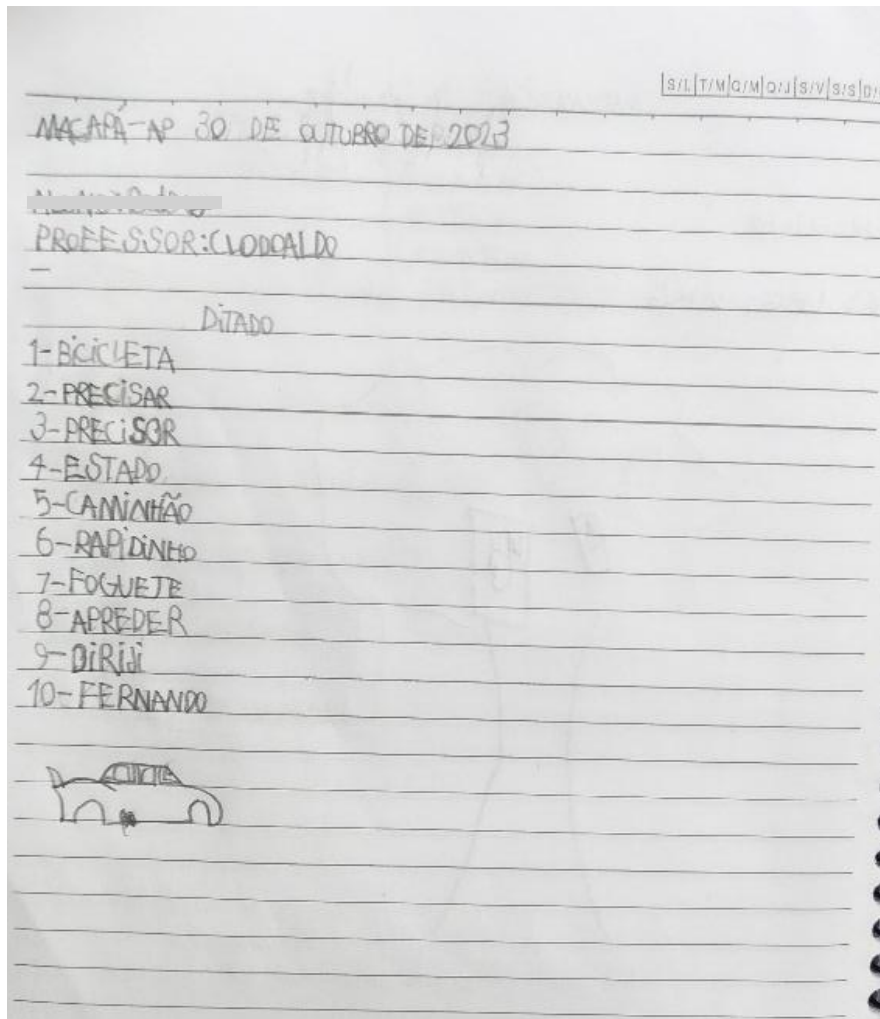 S/L T/M Q/M Q/J S/V S/S D/
MACAPÁ-AP 30 DE OUTUBRO DE, 2023
PROFESSOR: CLODOALDO
DiTADO
1-BiCiCLETA
2-PRECiSAR
3-PRECiSOR
4-ESTADO
5-CAMiNHÃO
6-RAPiDiNHO
7-FOGUETE
8-APREDER
9-DiRiJi
10-FERNANDO